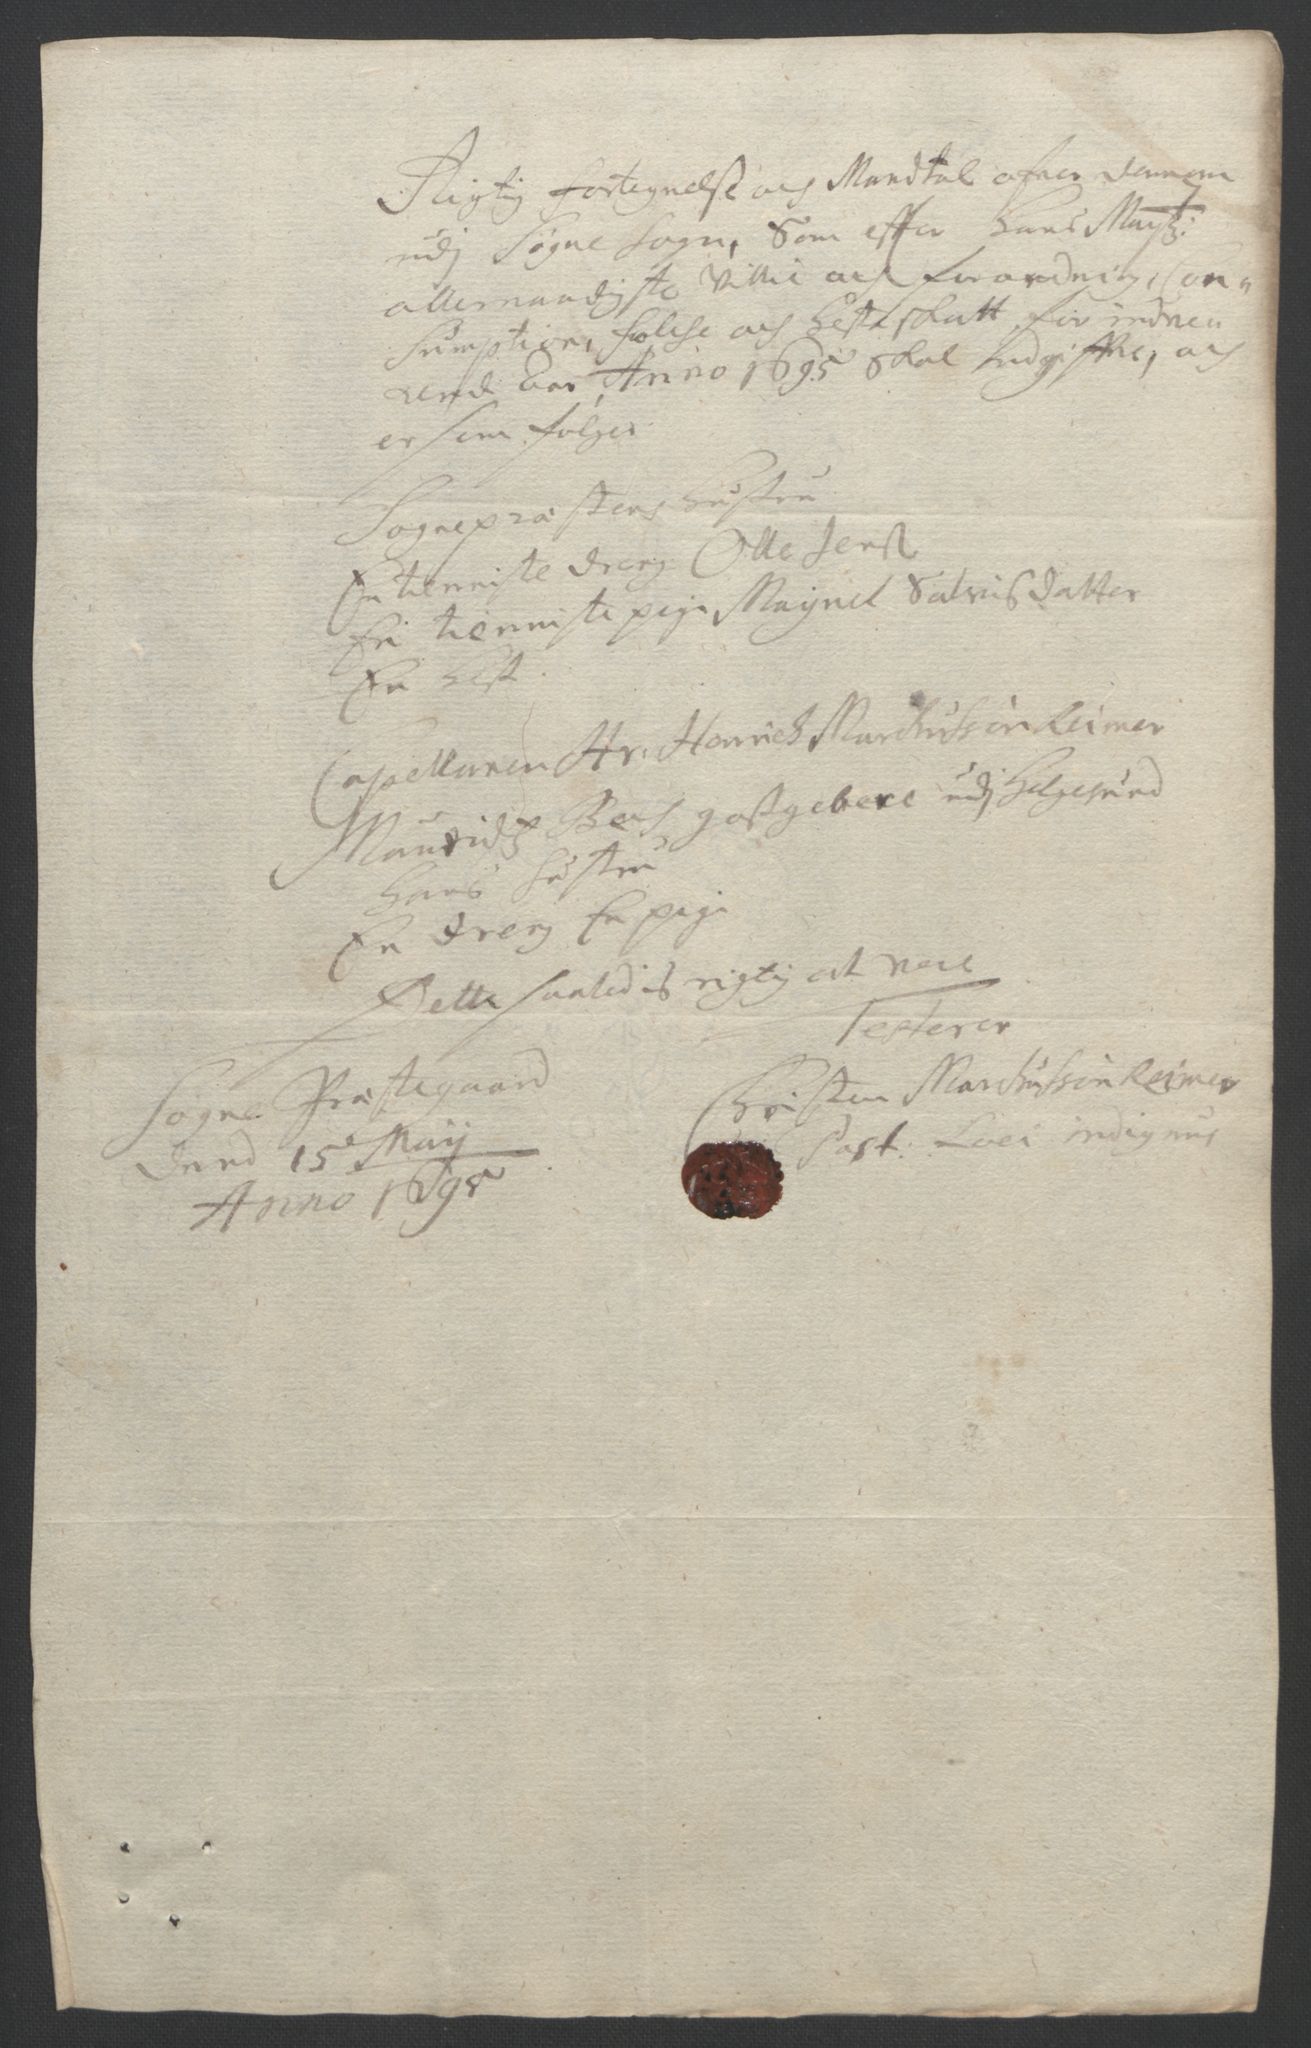 Rigtig fortegnelse och Mandtal ofuer dennem
udj Søgne Sogn, Som effter Hans Maÿtz:
allernaadigste Villie och forordning, Con=
sumption, folche och Heste skatt for indneu
rende aar Anno 1695 Skal indgiffue, och
er som følger
Sognepræstens Hustru
En tienniste dreng Olle Jenss
En tienniste pige Maÿnel Salvisdatter
En Hest
Capellanen Hr. Henrich Marchussøn Reimer
Mauridz Bech gestgebere udj Helgesund
Hans Hustru
En dreng En pige
Dette saaledis rigtig at vere
Testerer
Christen Marchussøn Reimer
Past: Loci indignus
Søgne Præstegaard
dend 15 Maij
Anno 1695